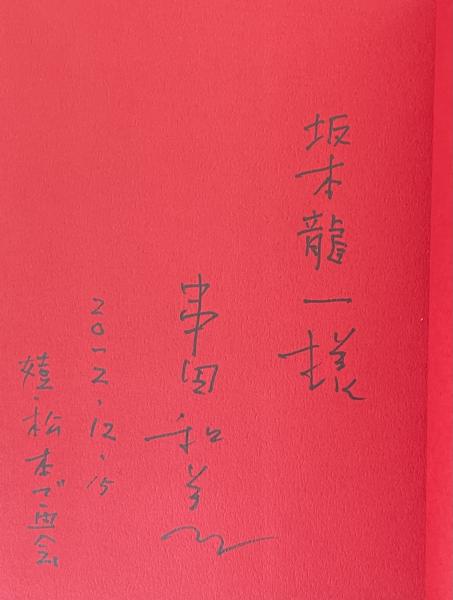 坂本龍一様
串田和美
2012.12.15
嬉・松本で再会